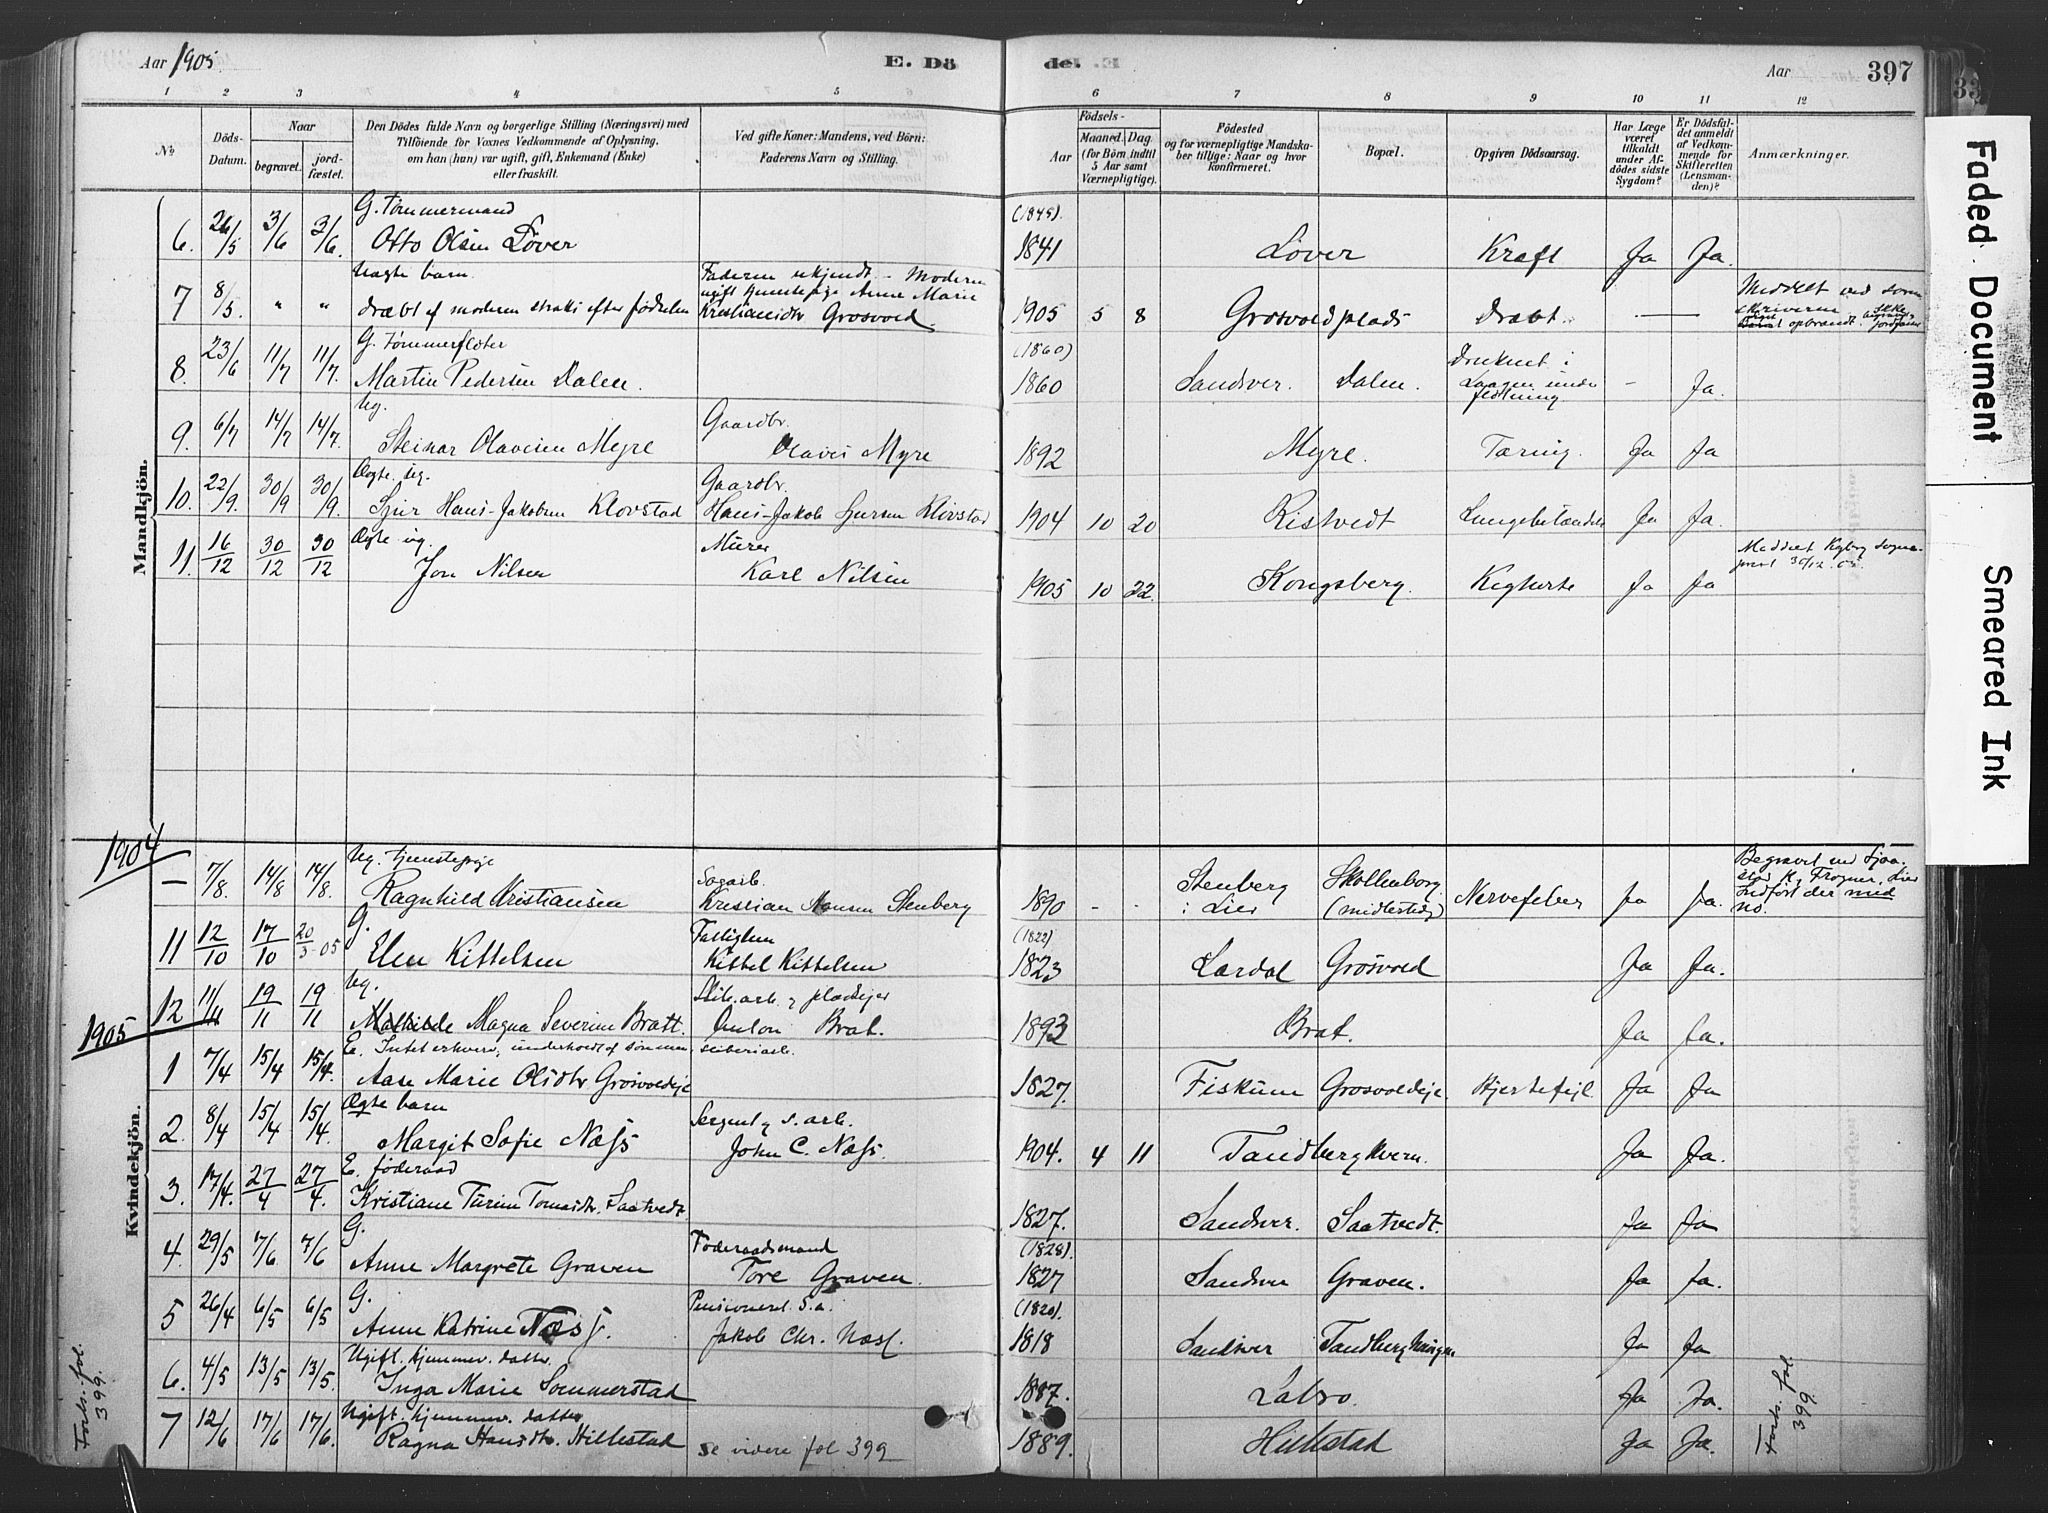 Aar 1905.
E. Dö
de. E
Aar
397
33
1 2 3 4 5 6 7 8 9 10 11 12
No
Döds-Datum.
Naar
begravet.
jord-fæstet.
Den Dödes fulde Navn og borgerlige Stilling (Næringsvei) med
Tilföiende for Voxnes Vedkommende af Oplysning,
om han (hun) var ugift, gift, Enkemand (Enke)
eller fraskilt.
Ved gifte Koner: Mandens, ved Börn:
Faderens Navn og Stilling.
Födsels-
Aar
Maaned. Dag.
(for Börn indtil
5 Aar samt
Værnepligtige).
Födested
og for værnepligtige Mandska-
ber tillige: Naar og hvor
konfirmeret.
Bopæl.
Opgiven Dödsaarsag.
Har Læge
været
tilkaldt
under Af-
dödes sidste
Sygdom?
Er Dödsfal-
det anmeldt
af Vedkom-
mende for
Skifteretten
(Lensman-
den)?
Anmærkninger.
Mandkjön.
G. Tømmermand (1845).
6. 26/5 3/6 3/6 Otto Olsen Løver 1841 Løver Kræft Ja Ja.
Uægte barn. Faderen ukjendt. - Moderen
ugift tjenestepige Anne Marie
7 8/5. " " dræbt af moderen straks efter fødselen Kristiansdtr Grosvold. 1905 5 8 Grosvoldplads Dræbt. — Meddelt ved soren
skriveren
opbrandt. Ikke
G. Tømmerfløter (1860)
8. 23/6 11/7 11/7. Martin Pedersen Dalen. 1860 Sandsver. Dalen. Druknet i
Laagen under
fløtning - Ja.
Ug. Gaardbr.
9. 6/7 14/7 14/7. Steinar Olavesen Myre Olaves Myre 1892 Myre. Tæring. Ja Ja
Ægte. ug. Gaardbr.
10. 22/9. 30/9 30/9. Sjur Hans-Jakobsen Klovstad Hans-Jakob Sjursen Klovstad 1904 10 20 Ristvedt Lungebetændels Ja Ja.
Ægte ug. Murer
11. 16/12 30/12 30/12 Jon Nilsen Karl Nilsen 1905 10 22. Kongsberg. Kighoste Ja Ja Meddelt Kgbrg sogne-
prest 30/12 05.
1904
Kvindekjön.
Ug. tjenestepige Sagarb.
— 7/8. 14/8 14/8. Ragnhild Kristiansen Kristian Hansen Stenberg 1890 - - Stenberg
i Lier Skollenborg
(midlertidig) Nervefeber Ja Ja. Begravet ved Sjaa-
stad K, Frogner, Lier
Indført der med
no.
G. Fattiglem (1822)
11 12/10 17/10 20/3 05 Elen Kittelsen Kittel Kittelsen 1823 Lardal Grosvold Ja Ja.
Ug. Slib. arb. & pladsejer
12 11/11 19/11 19/11 Mathilde Magna Severine Bratt. Anton Brat. 1893 Brat. Ja Ja.
1905
E. Intet erhverv, underholdt af sønnen, sliberiarb.
1 7/4 15/4 15/4. Aase Marie Olsdtr Grosvoldeje 1827. Fiskum Grosvoldeje. Hjertefejl. Ja Ja
Ægte barn Sergent & s. arb.
2. 8/4 15/4 15/4. Margit Sofie Næss John C. Næss. 1904. 4 11 Tandberg kvern. Ja Ja.
E. føderaad
3. 17/4. 27/4 27/4. Kristiane Turine Tomasdtr. Saatvedt 1827. Sandsver. Saatvedt. Ja Ja
G. Føderaadsmand (1828).
4. 29/5 7/6. 7/6 Anne Margrete Graven Tore Graven. 1827 Sandsver Graven. Ja Ja.
G. Pensioneret S.a. (1820).
5 26/4 6/5 6/5 Anne Katrine Næss. Jakob Chr. Næss. 1818 Sandsver Ja Ja
Ugift. hjemmev. datter.
6. 4/5 13/5 13/5. Inga Marie Sommerstad 1887. Labro Ja Ja.
Ugift. hjemmev. datter
7 12/6 17/6 17/6. Ragna Hansdtr. Hillestad se videre fol 399 1889. Hillestad Ja Ja.
Forts. fol.
399.
Forts. fol
399
Faded Document
Smeared Ink